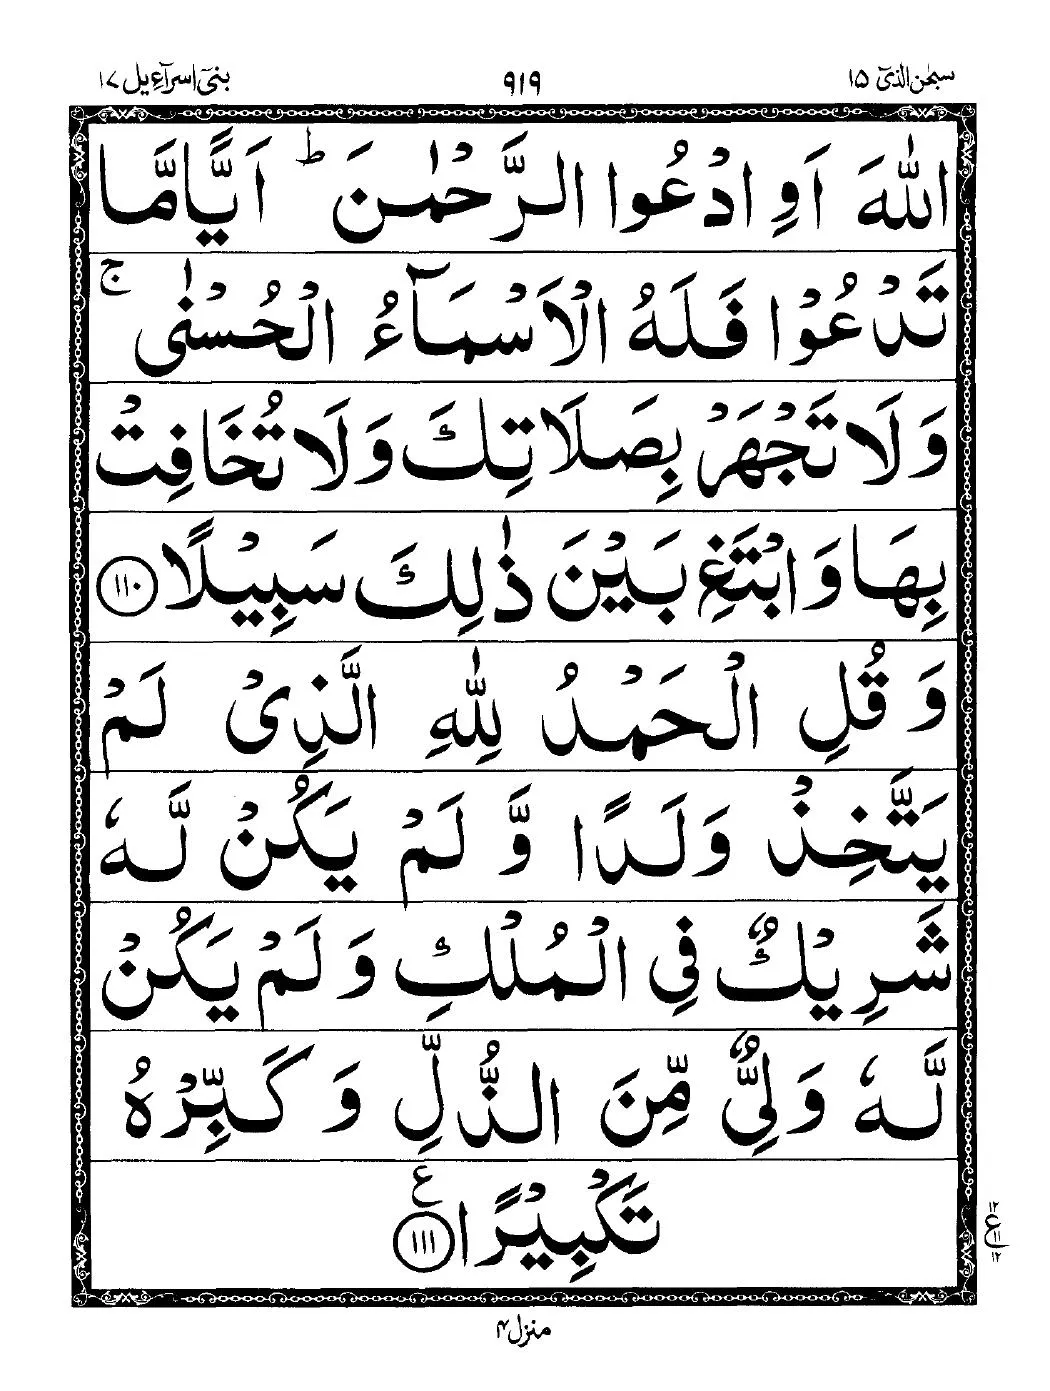 سبحٰن الذیٓ ۱۵ ۹۱۹ بنیٓ اسرآءیل ۱۷
اللّٰهَ اَوِ ادْعُوا الرَّحْمٰنَ ؕ اَيًّامَّا
تَدْعُوْا فَلَهُ الْاَسْمَآءُ الْحُسْنٰى ۚ
وَلَا تَجْهَرْ بِصَلَاتِكَ وَلَا تُخَافِتْ
بِهَا وَابْتَغِ بَيْنَ ذٰلِكَ سَبِيْلًا ﴿۱۱۰﴾
وَ قُلِ الْحَمْدُ لِلّٰهِ الَّذِىْ لَمْ
يَتَّخِذْ وَلَدًا وَّ لَمْ يَكُنْ لَّهٗ
شَرِيْكٌ فِى الْمُلْكِ وَ لَمْ يَكُنْ
لَّهٗ وَلِىٌّ مِّنَ الذُّلِّ وَ كَبِّرْهُ
تَكْبِيْرًا ﴿۱۱۱﴾ ع
۱۲
ع ۱۱
۱۲
منزل ۴